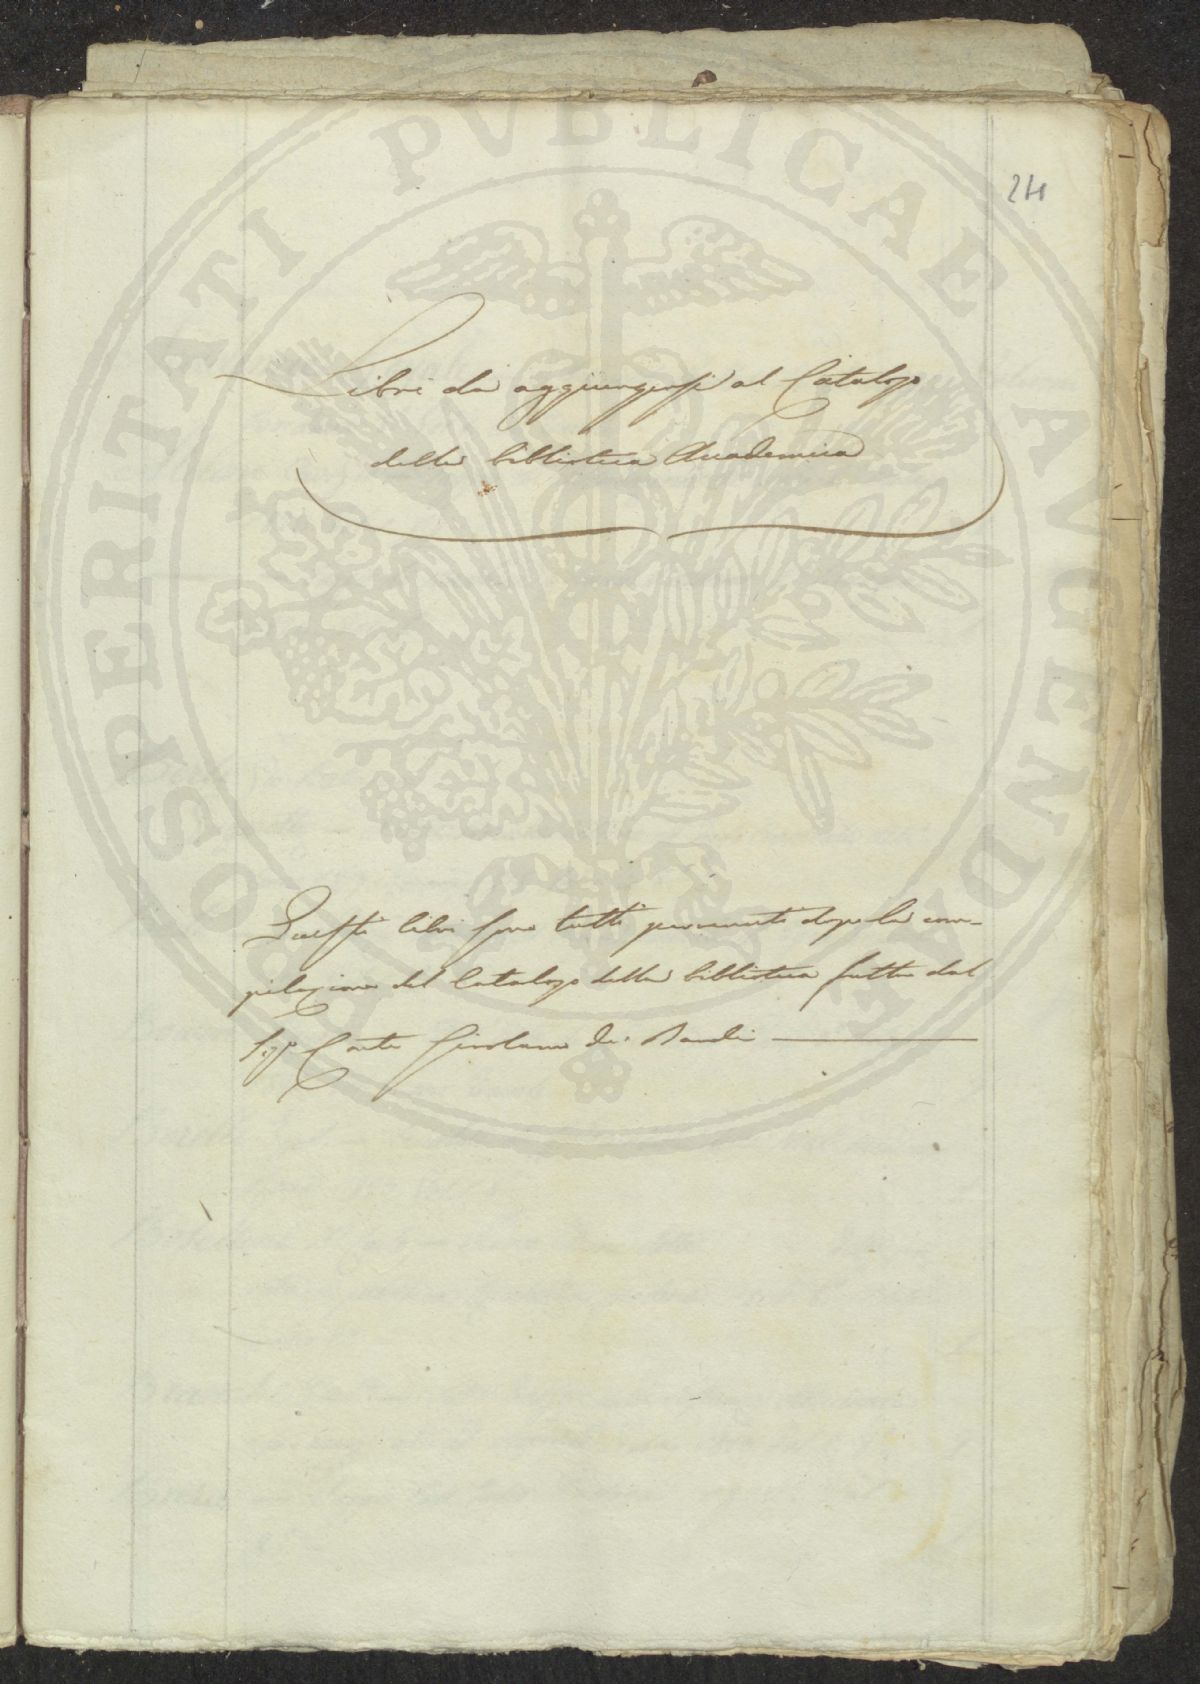 24
Libri da aggiungersi al Catalogo
della biblioteca Academica
Questi libri sono tutti pervenuti dopo la com-
pilazione del Catalogo della biblioteca fatta dal
Sigr Conte Girolamo de' Bardi
PROSPERITATI PVBLICAE AVGENDAE